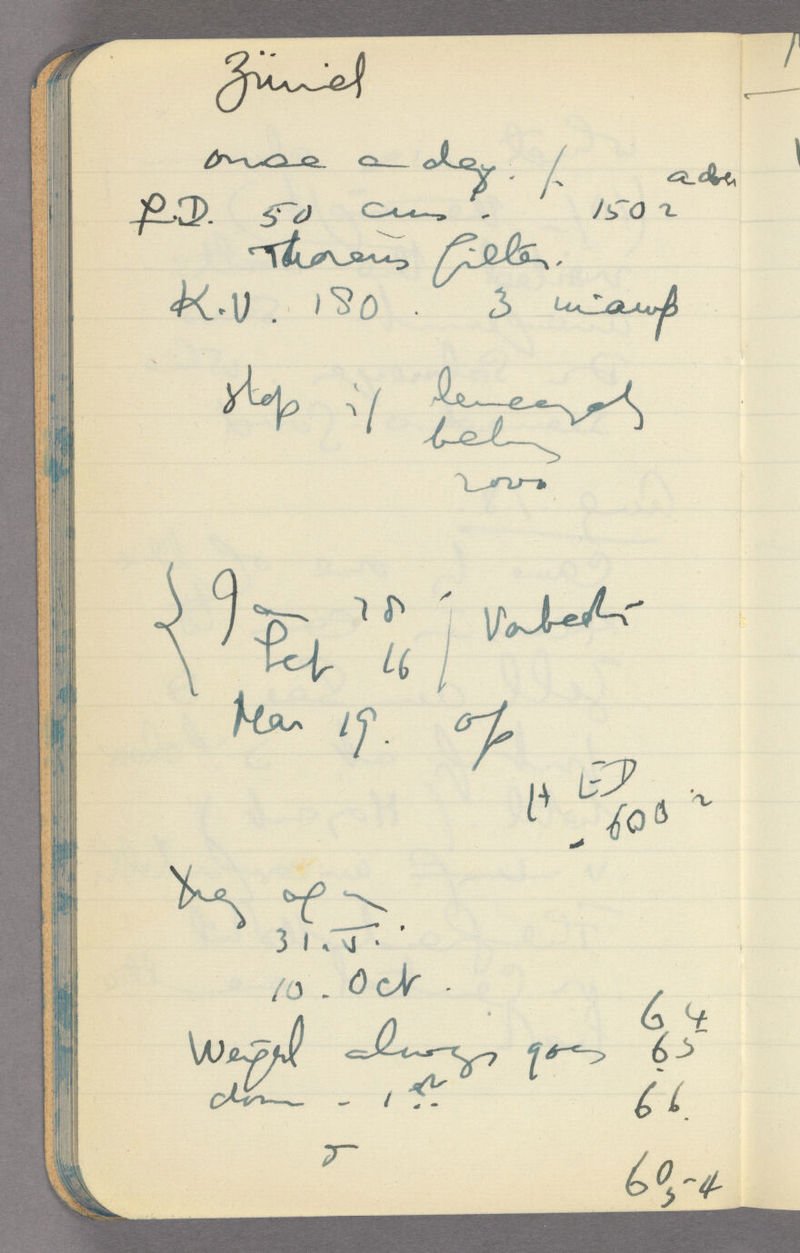 Zürich
once a day. /.
F.D. 50 cms. 150 r
Thoraeus filter.
K.V. 180. 3 miamp
stop if leucocyts
below
2000
{ Jan 28
Oct 16 / Vorbestr
Mar 19. op
H ED
- 600 r
Xray again
31.V.
10. Oct.
64
Weight always goes 65
down - 1
66.
60,5-4